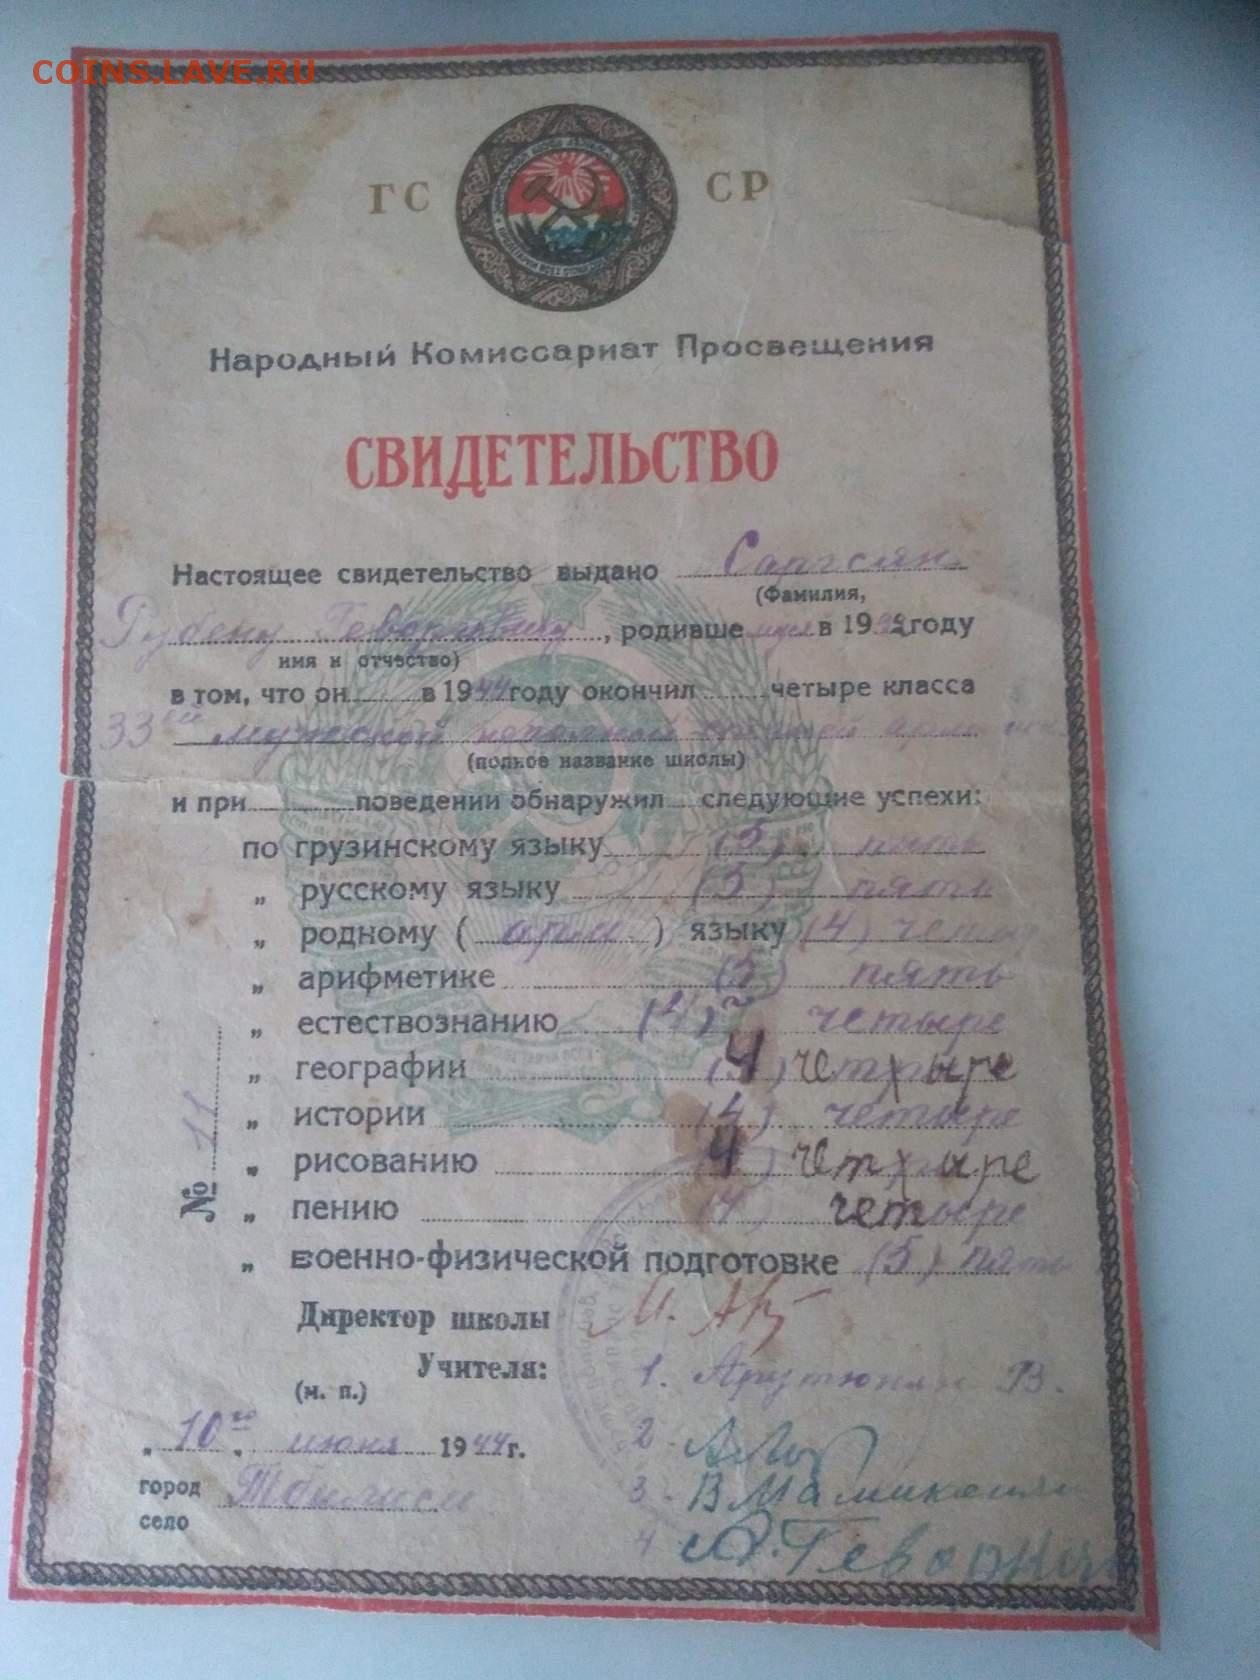 COINS.LAVE.RU
ГС СР
Народный Комиссариат Просвещения
СВИДЕТЕЛЬСТВО
Настоящее свидетельство выдано Саргсян
(Фамилия,
Рубену Геворковичу, родивше муся в 19 году
имя и отчество)
в том, что он в 1944 году окончил четыре класса
33 ей мужской неполной средней
(полное название школы)
и при поведении обнаружил следующие успехи:
по грузинскому языку (5) пять
„ русскому языку (5) пять
„ родному ( арм. ) языку (4) четыр
„ арифметике (5) пять
„ естествознанию (4) четыре
„ географии 4 четхыре
„ истории (4) четыре
„ рисованию 4 четхыре
„ пению (4) четыре
„ военно-физической подготовке (5) пять
№ 11
Директор школы
Учителя: 1. Арутюнян
(м. п.)
2.
„ 10 го „ июня 1944 г.
3. В Мамиконян
город Тбилиси
село
4 Геворкя